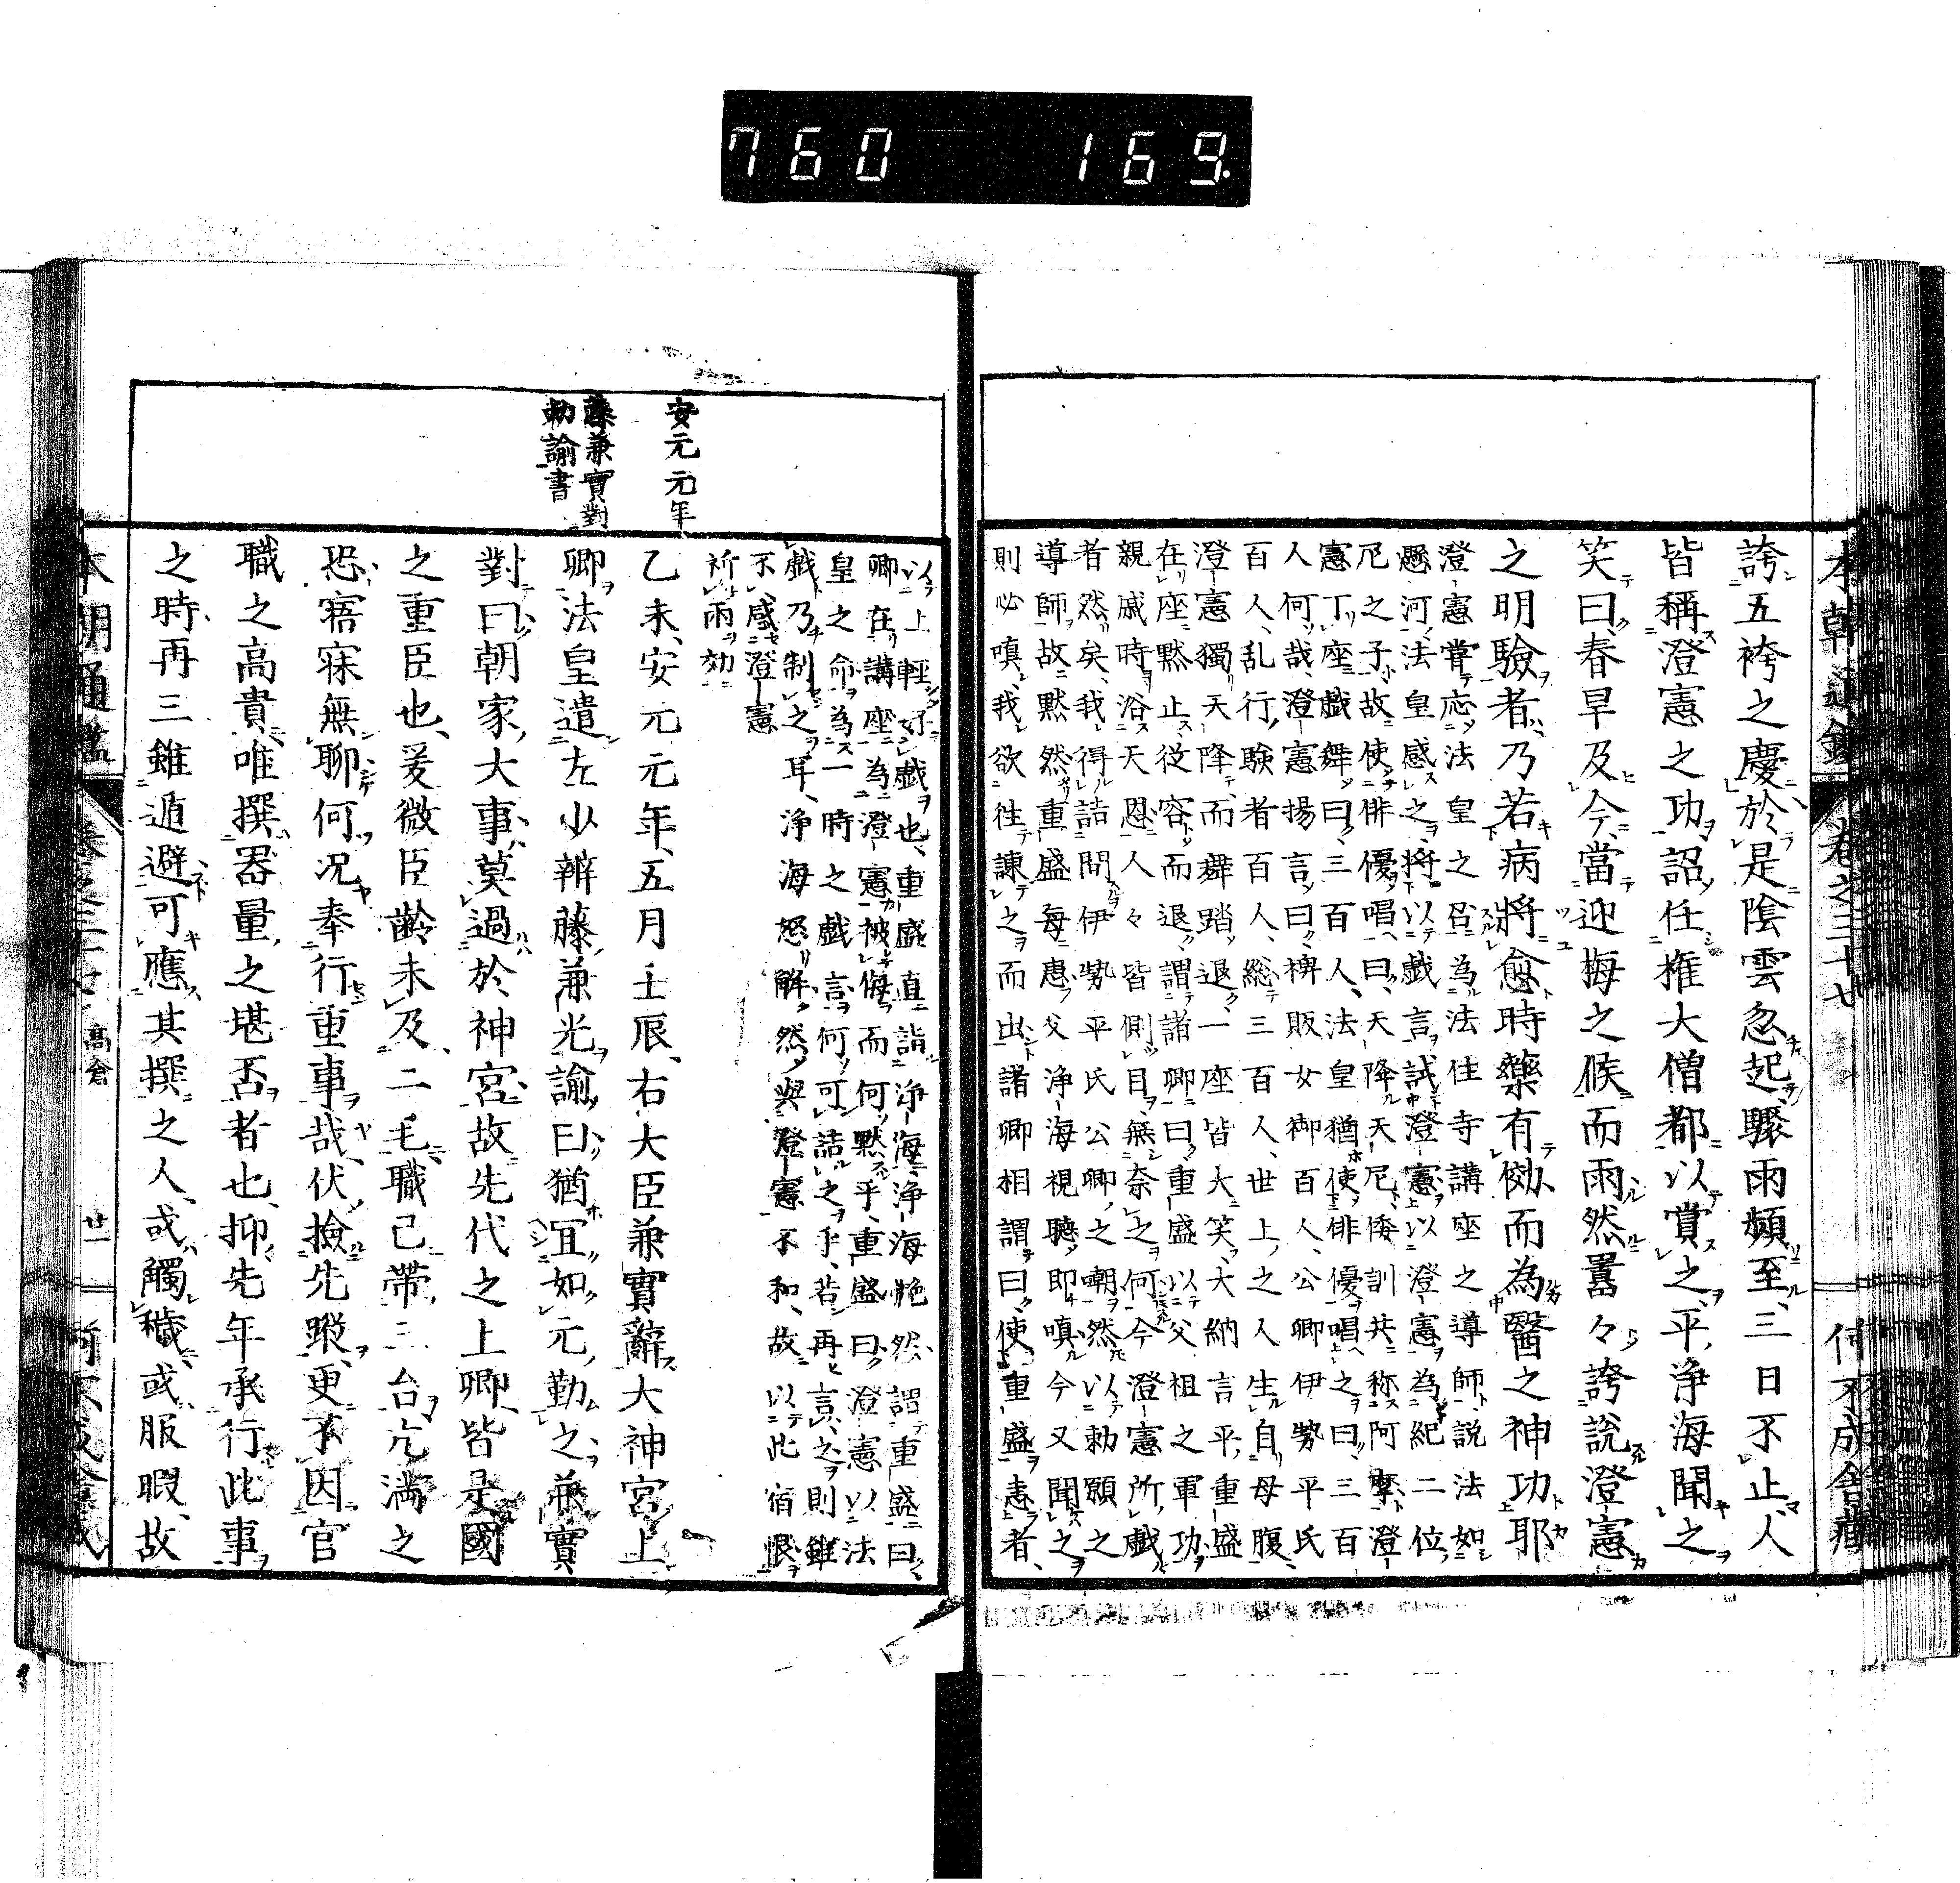 760 169
本朝通鑑 卷之三十七 何不成舍藏
誇五袴之慶於是陰雲忽起驟雨頻至三日不止人
皆稱澄憲之功詔任權大僧都以賞之平淨海聞之
笑曰春早及今當迎梅之候而雨然嚚々誇說澄憲
之明驗者乃若病將愈時藥有効而為醫之神功耶
澄憲嘗応法皇之召為法住寺講座之導師說法如
懸河法皇感之將以戲言試澄憲以澄憲為紀二位
尼之子故使俳優唱曰天降天尼倭訓共称阿摩澄
憲丁座戲舞曰三百人法皇猶使俳優唱之曰三百
人何哉澄憲揚言曰裨販女御百人公卿伊勢平氏
百人乱行驗者百人総三百人世上之人生自母腹
澄憲獨天降而舞踏退一座皆大笑大納言平重盛
在座黙止從容而退謂諸卿曰重盛以父祖之軍功
親戚時浴天恩人々皆側目無奈之何今澄憲所戲
者然矣我得詰問伊勢平氏公卿之嘲然以勅願之
導師故黙然重盛每恚父淨海視聽即嗔今又聞之
則必嗔我欲往諫之而出諸卿相謂曰使重盛恚者
以上輕好戲也重盛直詣淨海淨海艴然謂重盛曰
卿在講座為澄憲被侮而何黙乎重盛曰澄憲以法
皇之命為一時之戲言何可詰之乎若再言之則雖
戲乃制之耳淨海怒解然與澄憲不和故以此宿恨
不感澄憲
祈雨効
安元元年
乙未安元元年五月壬辰右大臣兼實辭大神宮上
藤兼實對
勅諭書
卿法皇遣左少辨藤兼光諭曰猶冝如元勤之兼實
對曰朝家大事莫過於神宮故先代之上卿皆是國
之重臣也爰微臣齡未及二毛職已帶三台亢滿之
恐寤寐無聊何况奉行重事哉伏撿先蹤更不因官
職之高貴唯撰器量之堪否者也抑先年承行此事
之時再三雖遁避可應其撰之人或觸穢或服暇故
本朝通鑑 卷之三十七 高倉 廿一